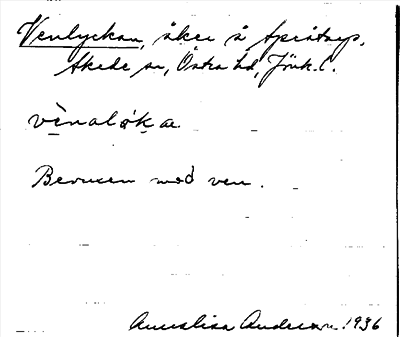 Venlyckan, åker å Spåtorp,
Skede sn, Östra hd, Jönk. l.
vènaløka
Bevuxen med ven.
Annalisa Anderson 1936